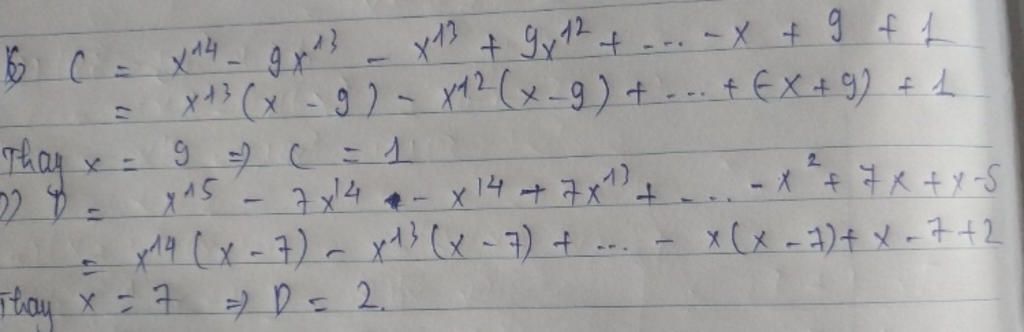 C = x¹⁴ - 9x¹³ - x¹³ + 9x¹² + .... - x + 9 + 1
= x¹³(x - 9) - x¹²(x - 9) + ... + (-x + 9) + 1
Thay x = 9 ⇒ C = 1
D = x¹⁵ - 7x¹⁴ - x¹⁴ + 7x¹³ + .... - x² + 7x + x - 5
= x¹⁴(x - 7) - x¹³(x - 7) + ... - x(x - 7) + x - 7 + 2
Thay x = 7 ⇒ D = 2.